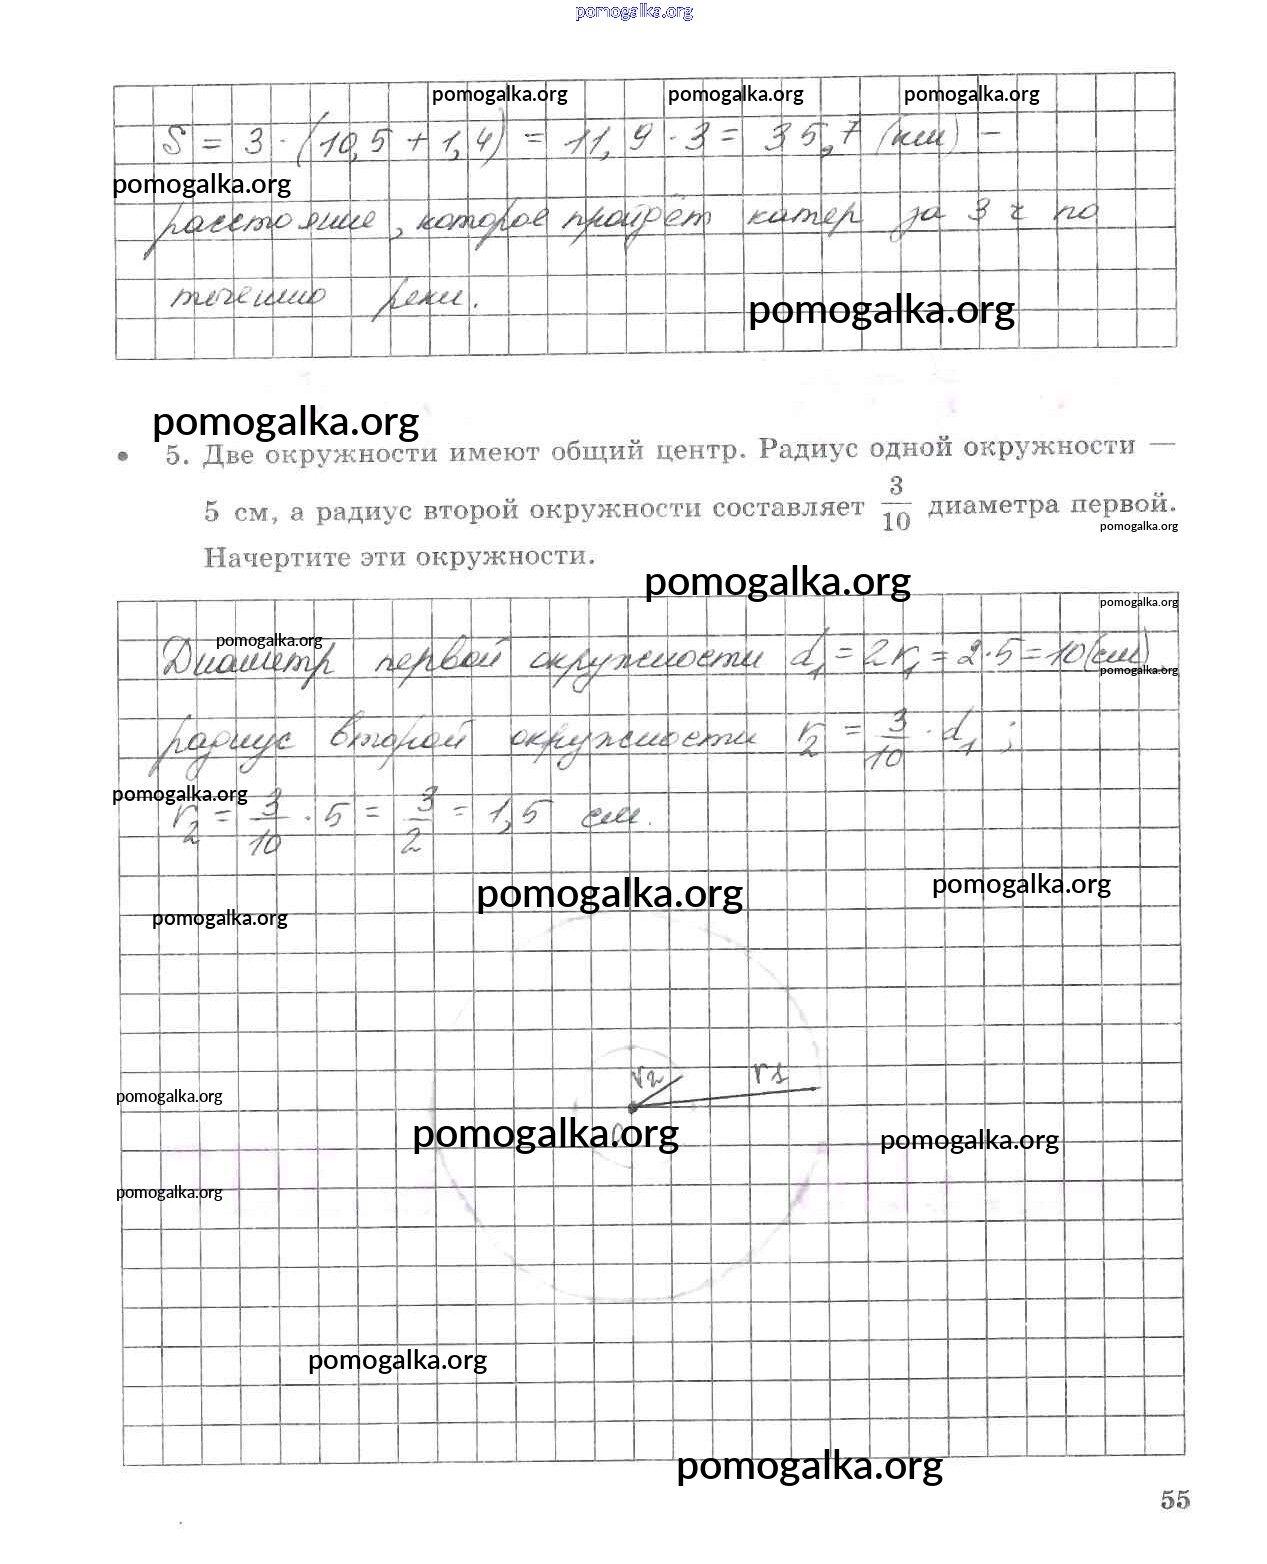 pomogalka.org
pomogalka.org pomogalka.org pomogalka.org
S = 3 · (10,5 + 1,4) = 11,9 · 3 = 35,7 (км) –
pomogalka.org
расстояние, которое пройдёт катер за 3 ч по
течению реки.
pomogalka.org
pomogalka.org
• 5. Две окружности имеют общий центр. Радиус одной окружности —
5 см, а радиус второй окружности составляет 3/10 диаметра первой.
pomogalka.org
Начертите эти окружности.
pomogalka.org
pomogalka.org
pomogalka.org
Диаметр первой окружности d₁ = 2r₁ = 2·5 = 10 (см)
pomogalka.org
радиус второй окружности r₂ = 3/10 · d₁ ;
pomogalka.org
r₂ = 3/10 · 5 = 3/2 = 1,5 см.
pomogalka.org pomogalka.org
pomogalka.org
r₂ r₁
pomogalka.org
O
pomogalka.org pomogalka.org
pomogalka.org
pomogalka.org
pomogalka.org
55